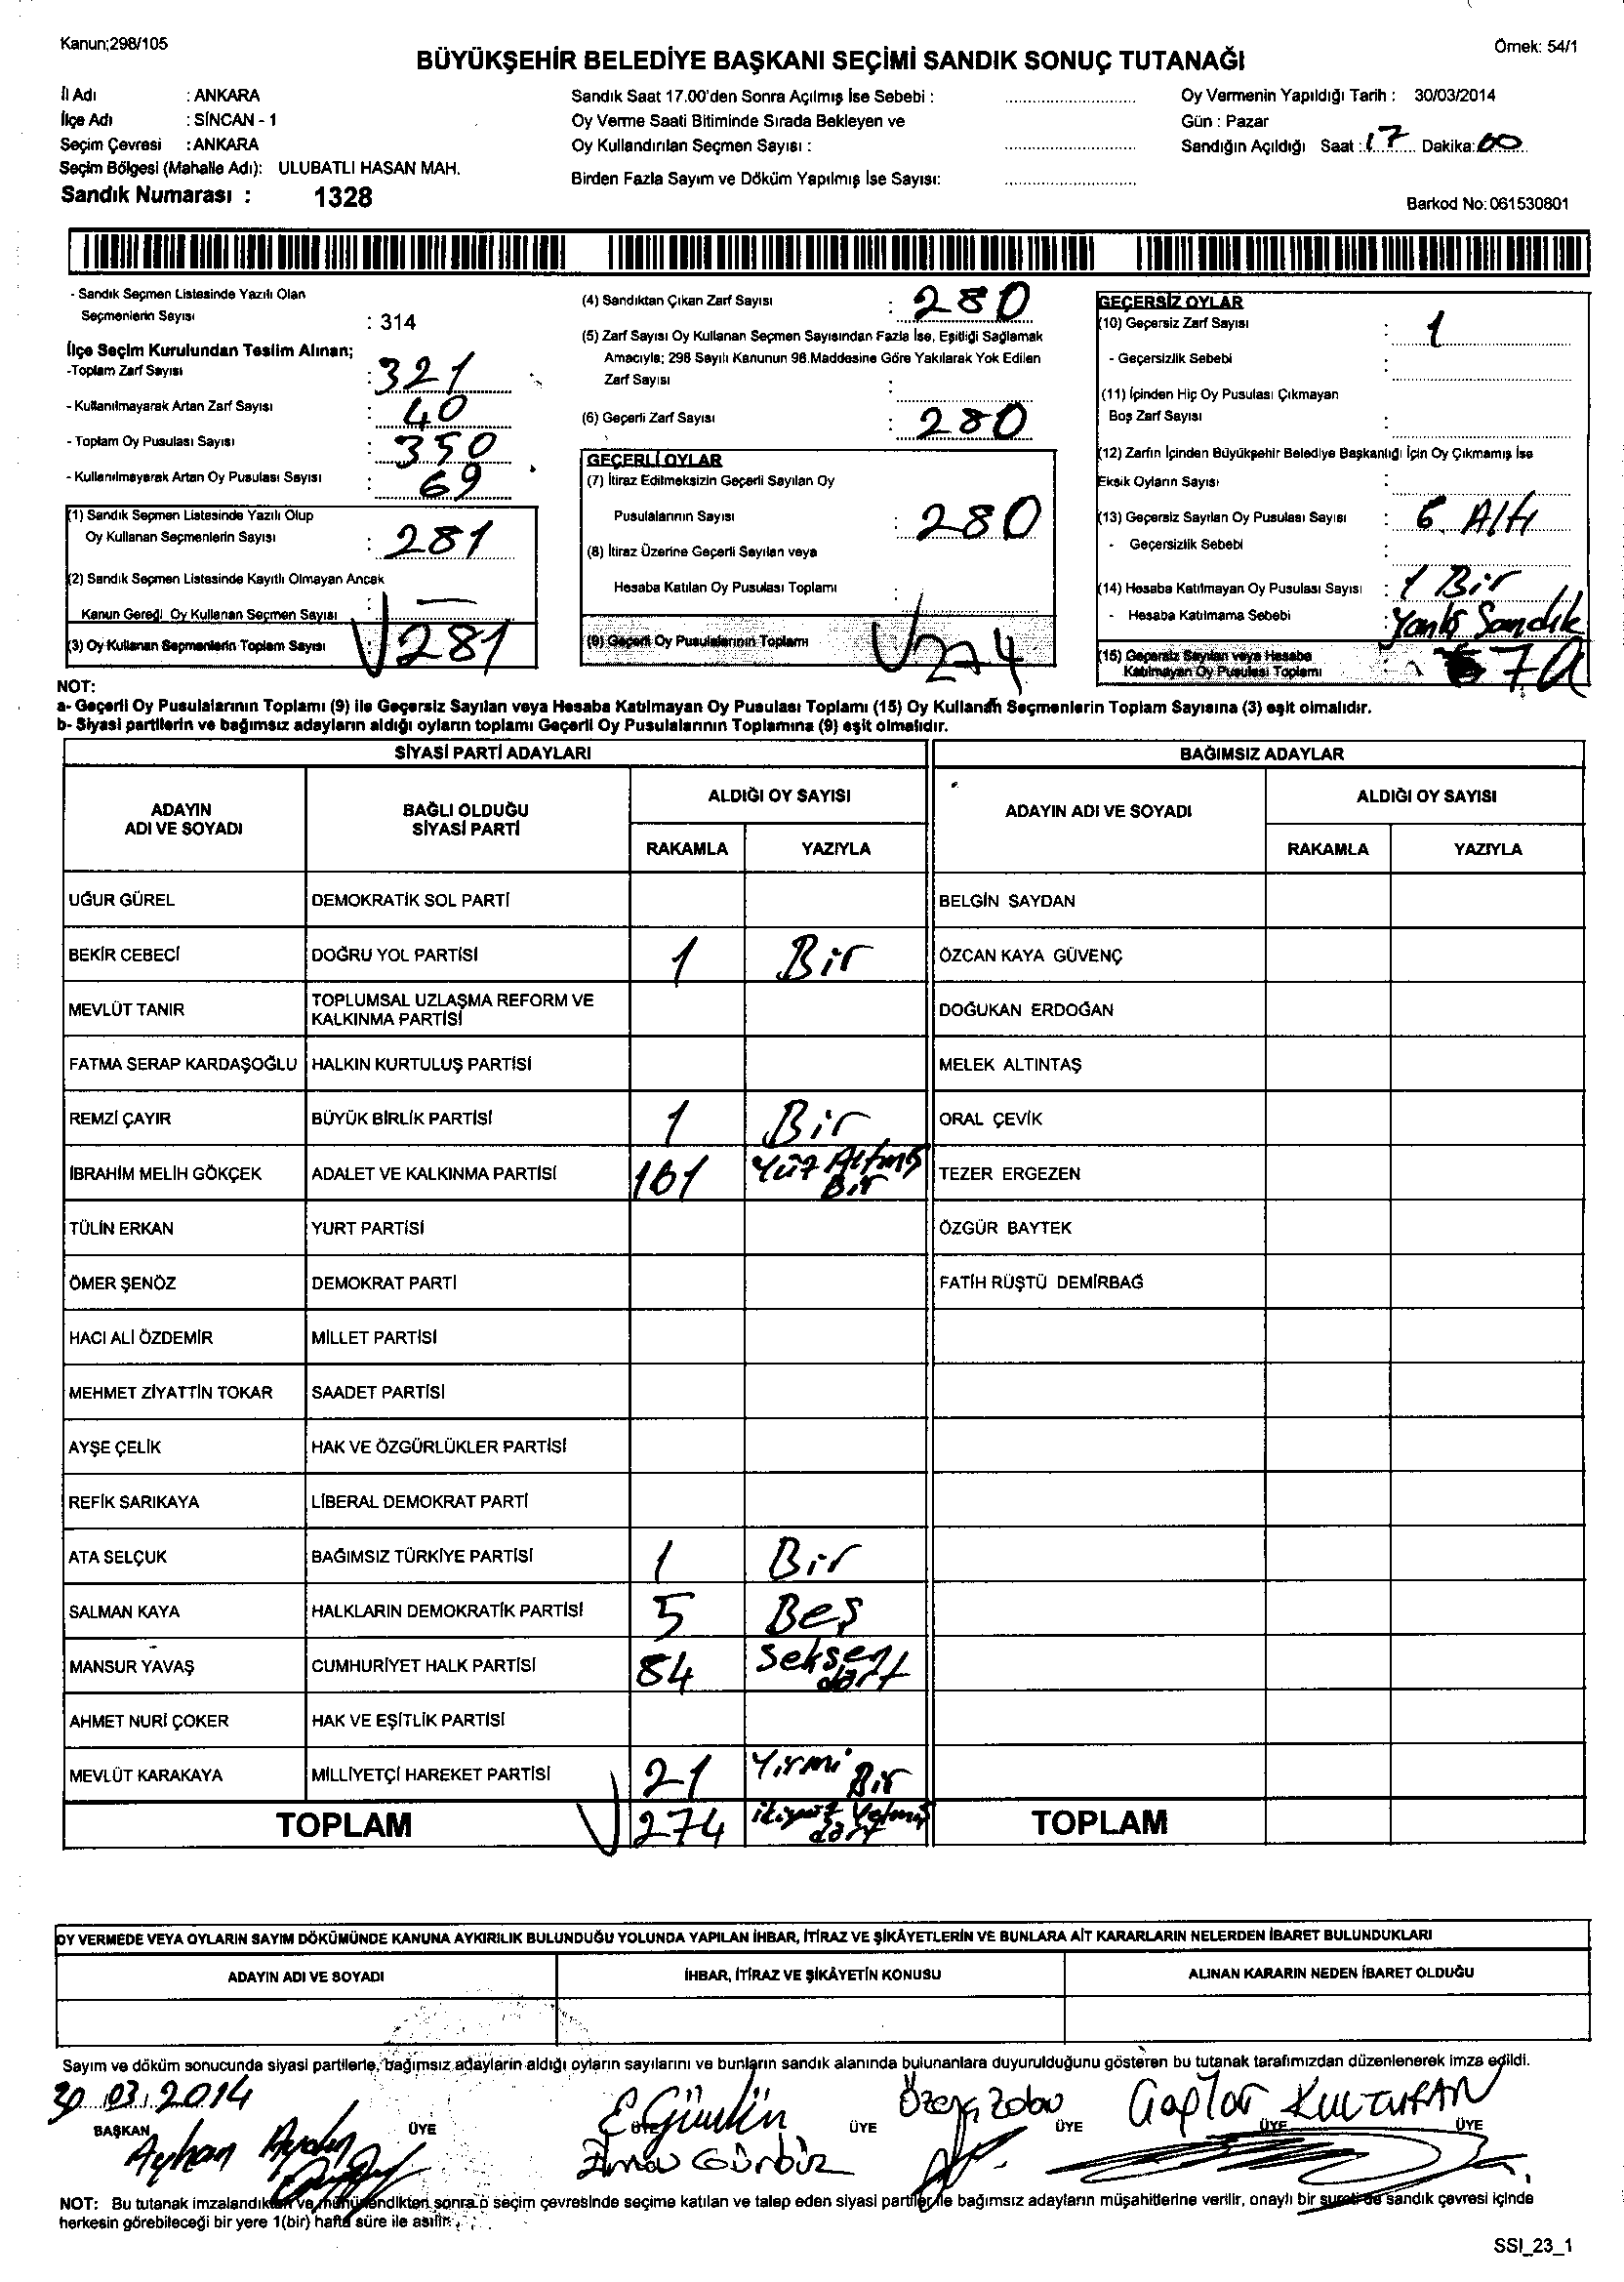 Kanun;298/105
Örnek: 54/1
BÜYÜKŞEHİR BELEDİYE BAŞKANI SEÇİMİ SANDIK SONUÇ TUTANAĞI
İl Adı : ANKARA
İlçe Adı : SİNCAN - 1
Seçim Çevresi : ANKARA
Seçim Bölgesi (Mahalle Adı): ULUBATLI HASAN MAH.
Sandık Numarası : 1328
Sandık Saat 17.00'den Sonra Açılmış İse Sebebi :
Oy Verme Saati Bitiminde Sırada Bekleyen ve
Oy Kullandırılan Seçmen Sayısı :
Birden Fazla Sayım ve Döküm Yapılmış İse Sayısı:
Oy Vermenin Yapıldığı Tarih : 30/03/2014
Gün : Pazar
Sandığın Açıldığı Saat : 17 Dakika: 00
Barkod No: 061530801
- Sandık Seçmen Listesinde Yazılı Olan
Seçmenlerin Sayısı : 314
İlçe Seçim Kurulundan Teslim Alınan;
-Toplam Zarf Sayısı : 321
- Kullanılmayarak Artan Zarf Sayısı : 40
- Toplam Oy Pusulası Sayısı : 350
- Kullanılmayarak Artan Oy Pusulası Sayısı : 69
(1) Sandık Seçmen Listesinde Yazılı Olup
Oy Kullanan Seçmenlerin Sayısı : 281
(2) Sandık Seçmen Listesinde Kayıtlı Olmayan Ancak
Kanun Gereği Oy Kullanan Seçmen Sayısı : —
(3) Oy Kullanan Seçmenlerin Toplam Sayısı 281
(4) Sandıktan Çıkan Zarf Sayısı : 280
(5) Zarf Sayısı Oy Kullanan Seçmen Sayısından Fazla İse, Eşitliği Sağlamak
Amacıyla; 298 Sayılı Kanunun 98.Maddesine Göre Yakılarak Yok Edilen
Zarf Sayısı :
(6) Geçerli Zarf Sayısı : 280
GEÇERLİ OYLAR
(7) İtiraz Edilmeksizin Geçerli Sayılan Oy
Pusulalarının Sayısı : 280
(8) İtiraz Üzerine Geçerli Sayılan veya
Hesaba Katılan Oy Pusulası Toplamı :
(9) Geçerli Oy Pusulalarının Toplamı 274
GEÇERSİZ OYLAR
(10) Geçersiz Zarf Sayısı : 1
- Geçersizlik Sebebi :
(11) İçinden Hiç Oy Pusulası Çıkmayan
Boş Zarf Sayısı :
(12) Zarfın İçinden Büyükşehir Belediye Başkanlığı İçin Oy Çıkmamış İse
Eksik Oyların Sayısı :
(13) Geçersiz Sayılan Oy Pusulası Sayısı : 6 Altı
- Geçersizlik Sebebi :
(14) Hesaba Katılmayan Oy Pusulası Sayısı : 1 Bir
- Hesaba Katılmama Sebebi : Yanlış Sandık
(15) Geçersiz Sayılan veya Hesaba
Katılmayan Oy Pusulası Toplamı : 7
NOT:
a- Geçerli Oy Pusulalarının Toplamı (9) ile Geçersiz Sayılan veya Hesaba Katılmayan Oy Pusulası Toplamı (15) Oy Kullanan Seçmenlerin Toplam Sayısına (3) eşit olmalıdır.
b- Siyasi partilerin ve bağımsız adayların aldığı oyların toplamı Geçerli Oy Pusulalarının Toplamına (9) eşit olmalıdır.
SİYASİ PARTİ ADAYLARI BAĞIMSIZ ADAYLAR
ADAYIN ADI VE SOYADI BAĞLI OLDUĞU SİYASİ PARTİ ALDIĞI OY SAYISI ADAYIN ADI VE SOYADI ALDIĞI OY SAYISI
RAKAMLA YAZIYLA RAKAMLA YAZIYLA
UĞUR GÜREL DEMOKRATİK SOL PARTİ BELGİN SAYDAN
BEKİR CEBECİ DOĞRU YOL PARTİSİ 1 Bir ÖZCAN KAYA GÜVENÇ
MEVLÜT TANIR TOPLUMSAL UZLAŞMA REFORM VE KALKINMA PARTİSİ DOĞUKAN ERDOĞAN
FATMA SERAP KARDAŞOĞLU HALKIN KURTULUŞ PARTİSİ MELEK ALTINTAŞ
REMZİ ÇAYIR BÜYÜK BİRLİK PARTİSİ 1 Bir ORAL ÇEVİK
İBRAHİM MELİH GÖKÇEK ADALET VE KALKINMA PARTİSİ 161 Yüz Altmış Bir TEZER ERGEZEN
TÜLİN ERKAN YURT PARTİSİ ÖZGÜR BAYTEK
ÖMER ŞENÖZ DEMOKRAT PARTİ FATİH RÜŞTÜ DEMİRBAĞ
HACI ALİ ÖZDEMİR MİLLET PARTİSİ
MEHMET ZİYATTİN TOKAR SAADET PARTİSİ
AYŞE ÇELİK HAK VE ÖZGÜRLÜKLER PARTİSİ
REFİK SARIKAYA LİBERAL DEMOKRAT PARTİ
ATA SELÇUK BAĞIMSIZ TÜRKİYE PARTİSİ 1 Bir
SALMAN KAYA HALKLARIN DEMOKRATİK PARTİSİ 5 Beş
MANSUR YAVAŞ CUMHURİYET HALK PARTİSİ 84 Seksen dört
AHMET NURİ ÇOKER HAK VE EŞİTLİK PARTİSİ
MEVLÜT KARAKAYA MİLLİYETÇİ HAREKET PARTİSİ 21 Yirmi Bir
TOPLAM 274 ikiyüz Yetmiş dört TOPLAM
OY VERMEDE VEYA OYLARIN SAYIM DÖKÜMÜNDE KANUNA AYKIRILIK BULUNDUĞU YOLUNDA YAPILAN İHBAR, İTİRAZ VE ŞİKÂYETLERİN VE BUNLARA AİT KARARLARIN NELERDEN İBARET BULUNDUKLARI
ADAYIN ADI VE SOYADI İHBAR, İTİRAZ VE ŞİKÂYETİN KONUSU ALINAN KARARIN NEDEN İBARET OLDUĞU
Sayım ve döküm sonucunda siyasi partilerle, bağımsız adayların aldığı oyların sayılarını ve bunların sandık alanında bulunanlara duyurulduğunu gösteren bu tutanak tarafımızdan düzenlenerek imza edildi.
30.03.2014
BAŞKAN ÜYE ÜYE ÜYE ÜYE ÜYE ÜYE
Ayhan Aydın
NOT: Bu tutanak imzalandıktan ve mühürlendikten sonra o seçim çevresinde seçime katılan ve talep eden siyasi partiler ile bağımsız adayların müşahitlerine verilir, onaylı bir sureti de sandık çevresi içinde
herkesin görebileceği bir yere 1(bir) hafta süre ile asılır.
SSI_23_1